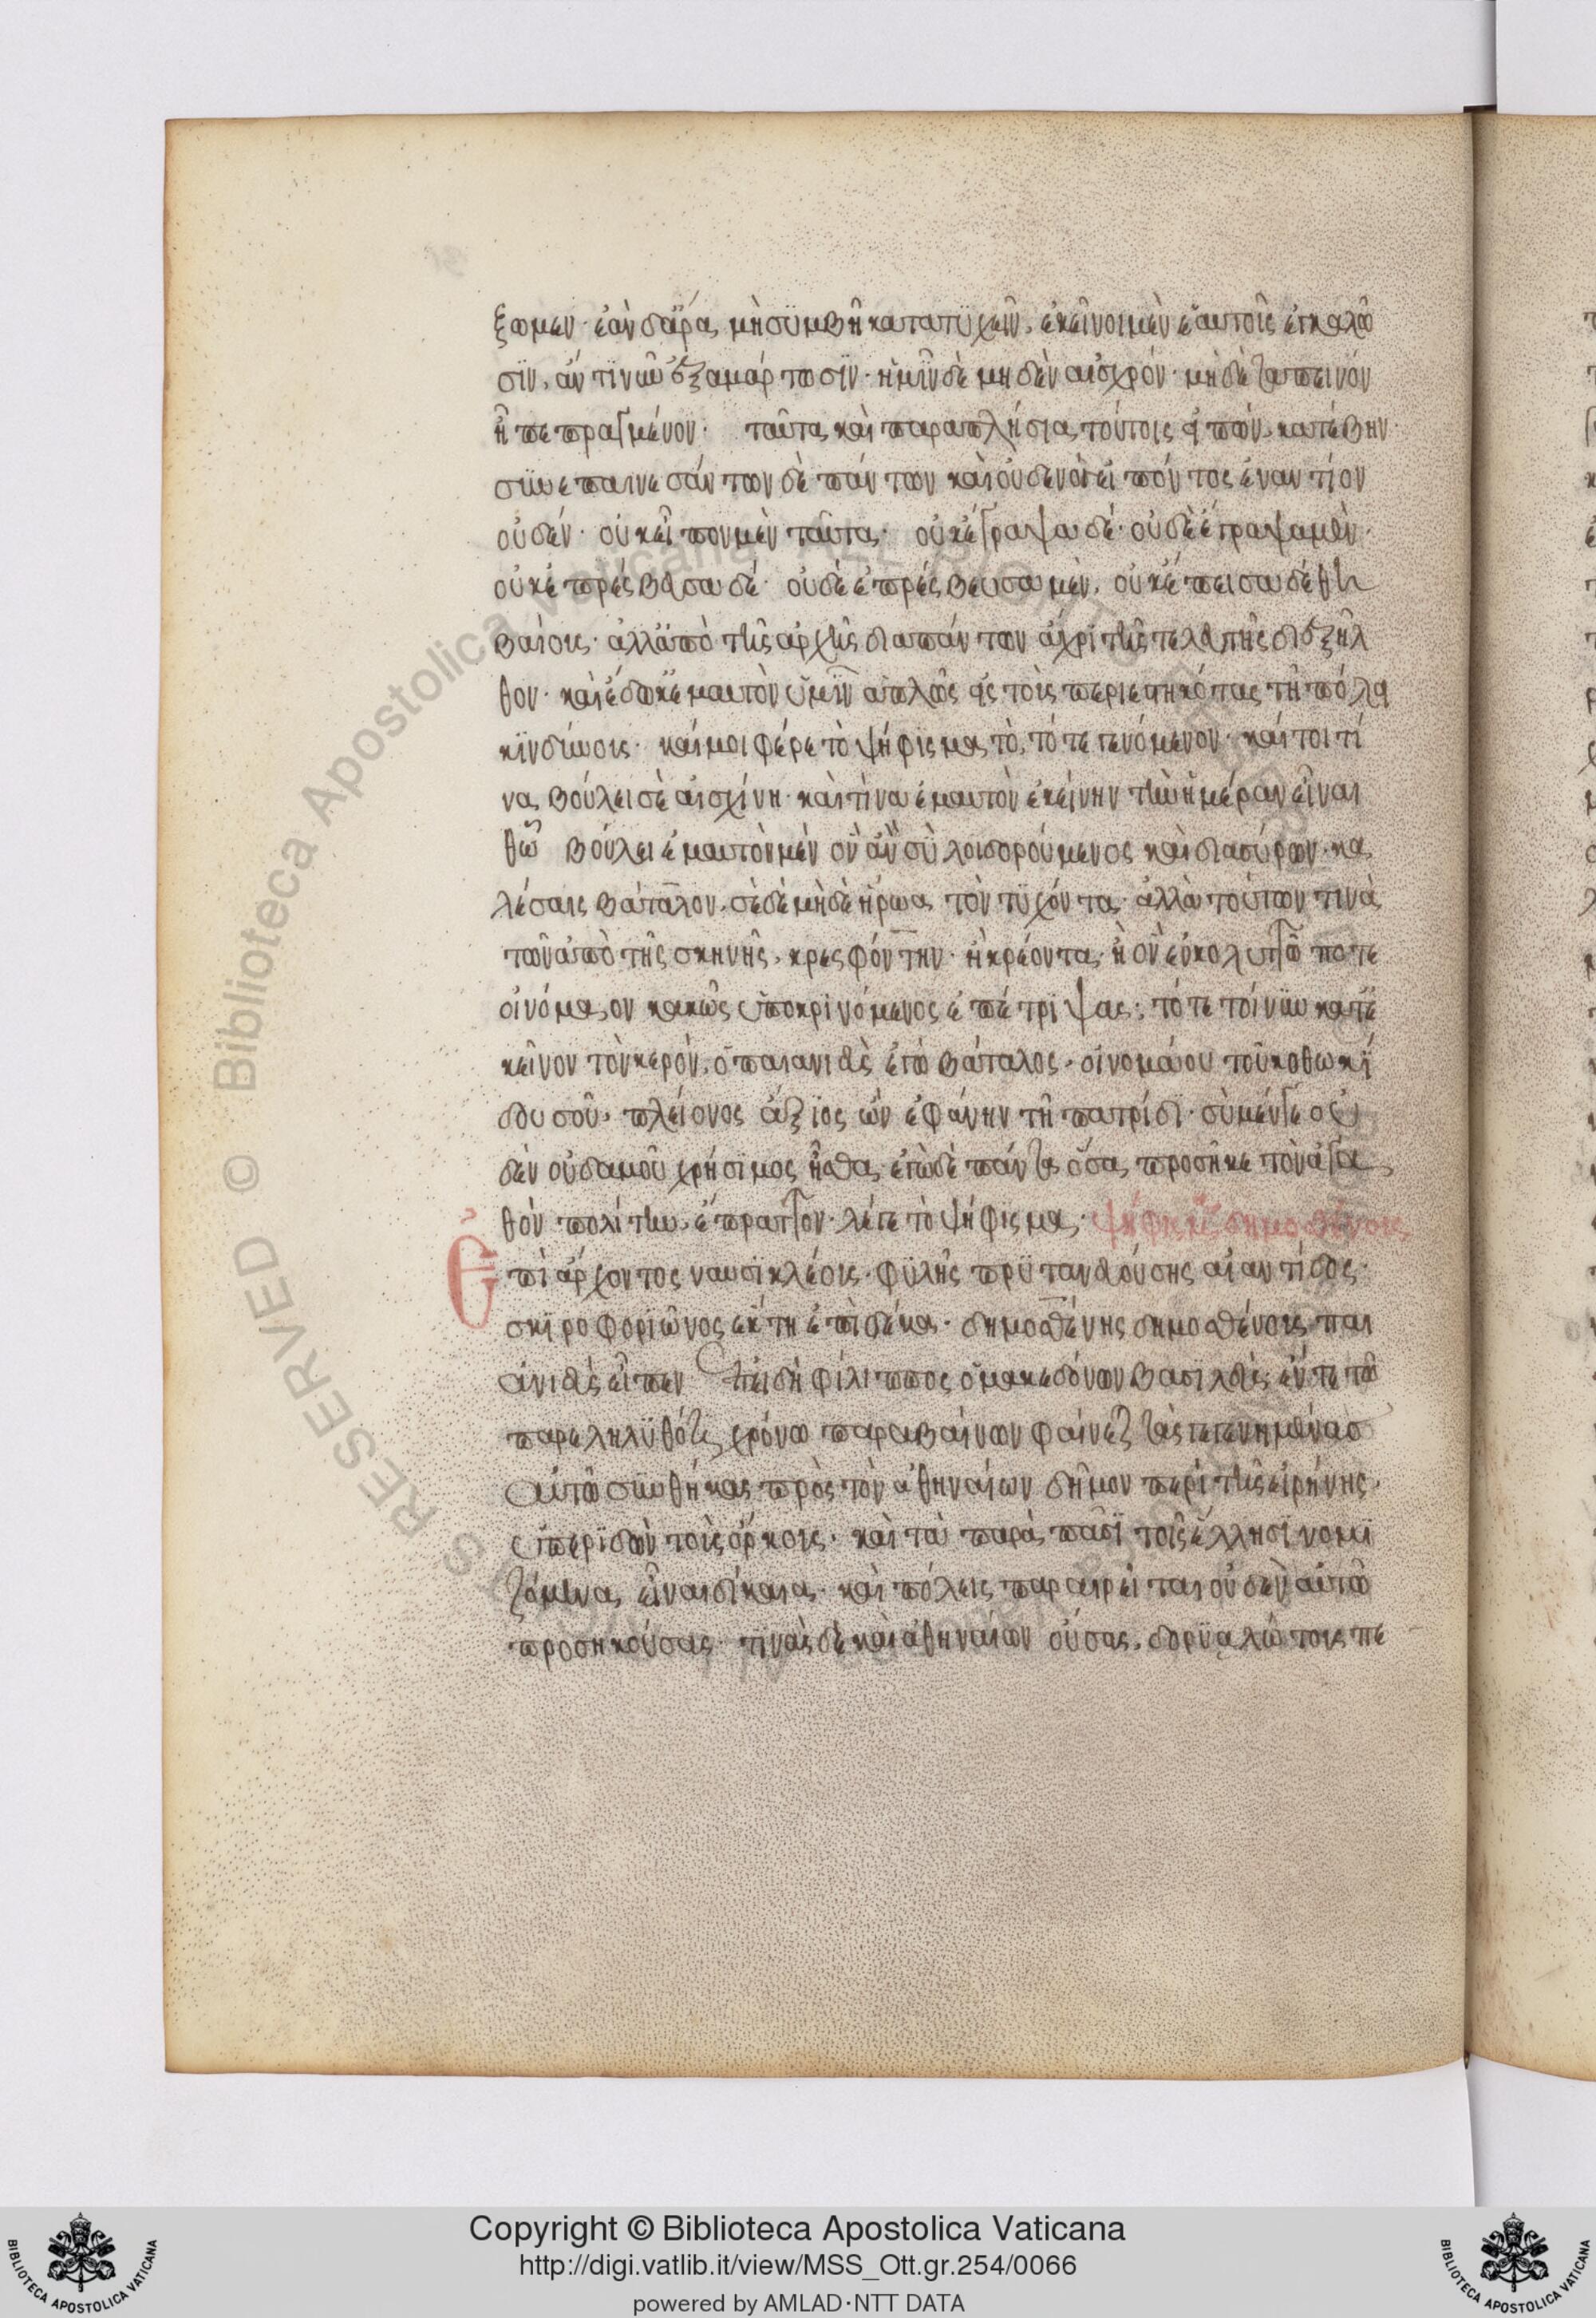 ξωμεν· ἐὰν δ' ἄρα μὴ συμβῆ κατατυχεῖν, ἐκεῖνοι μὲν ἑαυτοῖς ἐγκαλῶ
σιν, ἄν τι νῦν ἐξαμάρτωσιν· ἡμῖν δὲ μηδὲν αἰσχρόν· μὴδὲ ταπεινόν
ἦ πεπραγμένον· ταῦτα καὶ παραπλήσια τούτοις εἰπών, κατέβην·
συνεπαινεσάντων δὲ πάντων καὶ οὐδενὸς εἰπόντος ἐναντίον
οὐδέν· οὐκ εἶπον μὲν ταῦτα· οὐκ ἔγραψα δέ· οὐδὲ ἔγραψα μὲν·
οὐκ ἐπρέσβευσα δέ· οὐδὲ ἐπρέσβευσα μὲν, οὐκ ἔπεισα δὲ θη
βαίους· ἀλλ' ἀπὸ τῆς ἀρχῆς διαπάντων ἄχρι τῆς τελευτῆς διεξῆλ
θον· καὶ ἔδωκ' ἐμαυτὸν ὑμῖν ἁπλῶς εἰς τοὺς περιεστηκότας τῆ πόλει
κινδύνους· καί μοι φέρε τὸ ψήφισμα τὸ τότε γενόμενον· καίτοι τί
να βούλει σὲ αἰσχίνη· καὶ τίνα ἐμαυτὸν ἐκείνην τὴν ἡμέραν εἶναι
θῶ βούλει ἐμαυτὸν μὲν ὃν ἂν σὺ λοιδορούμενος καὶ διασύρων· κα
λέσαις βάταλον, σὲ δὲ μὴδὲ ἥρωα τὸν τυχόντα· ἀλλὰ τούτων τινὰ
τῶν ἀπὸ τῆς σκηνῆς, κρεσφόντην· ἢ κρέοντα· ἢ ὃν ἐν κολυττῶ ποτε
οἰνόμαον κακῶς ὑποκρινόμενος ἐπέτριψας· τότε τοίνυν κατ' ἐ
κεῖνον τὸν κερόν, ὁ παιανιεὺς ἐγὼ βάταλος· οἰνομάου τοῦ κοθωκί
δου σοῦ· πλείονος ἄξιος ὢν ἐφάνην τῆ πατρίδι· σὺ μέν γε οὐ
δὲν οὐδαμοῦ χρήσιμος ἦσθα· ἐγὼ δὲ πάντα ὅσα προσῆκε τὸν ἀγα
θὸν πολίτην, ἔπραττον· λέγε τὸ ψήφισμα· ψήφισμα δημοσθένους
Ἐπὶ ἄρχοντος ναυσικλέους· φυλῆς πρυτανευούσης αἰαντίδος·
σκιροφοριῶνος ἕκτη ἐπὶ δέκα· δημοσθένης δημοσθένους παι
ανιεὺς εἶπεν Ἐπειδὴ φίλιππος ὁ μακεδόνων βασιλεὺς ἔν τε τῶ
παρεληλυθότι χρόνω παραβαίνων φαίνεται τὰς γεγενημένας
αὐτῶ συνθήκας πρὸς τὸν ἀθηναίων δῆμον περὶ τῆς εἰρήνης·
ὑπεριδὼν τοὺς ὅρκους· καὶ τὰ παρὰ πᾶσι τοῖς ἕλλησι νομι
ζόμενα εἶναι δίκαια· καὶ πόλεις παραιρεῖται οὐδὲν αὐτῶ
προσηκούσας· τινὰς δὲ καὶ ἀθηναίων οὔσας, δορυαλώτους πε
Copyright © Biblioteca Apostolica Vaticana
http://digi.vatlib.it/view/MSS_Ott.gr.254/0066
powered by AMLAD·NTT DATA